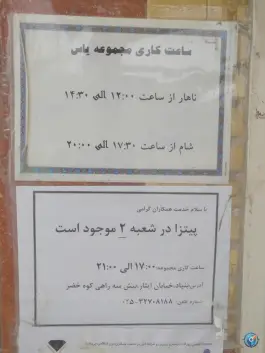 ساعت کاری مجموعه یاس
ناهار از ساعت ۱۲:۰۰ الی ۱۴:۳۰
شام از ساعت ۱۷:۳۰ الی ۲۰:۰۰
با سلام خدمت همکاران گرامی
پیتزا در شعبه ۲ موجود است
ساعت کاری مجموعه: ۱۷:۰۰ الی ۲۱:۰۰
آدرس: بنیاد، خیابان ایثار، نبش سه راهی کوه خضر
شماره تلفن: ۰۲۵-۳۲۷۰۸۱۸۸